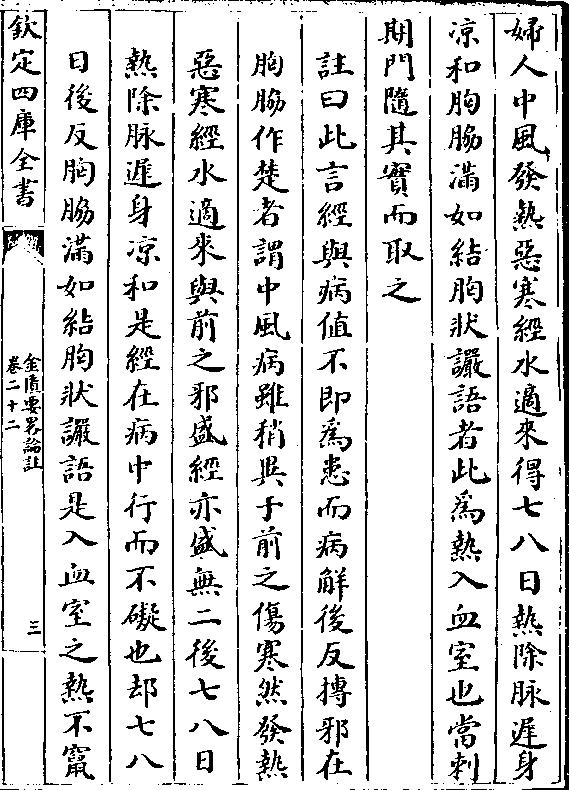 婦人中風發熱惡寒經水適來得七八日熱除脉遲身
凉和胸脇滿如結胸狀讝語者此爲熱入血室也當刺
期門隨其實而取之
註曰此言經與病值不即爲患而病解後反摶邪在
胸脇作楚者謂中風病雖稍異于前之傷寒然發熱
惡寒經水適來與前之邪盛經亦盛無二後七八日
熱除脉遲身凉和是經在病中行而不礙也却七八
日後反胸脇滿如結胸狀讝語是入血室之熱不竄
欽定四庫全書
金匱要畧論註
卷二十二
三